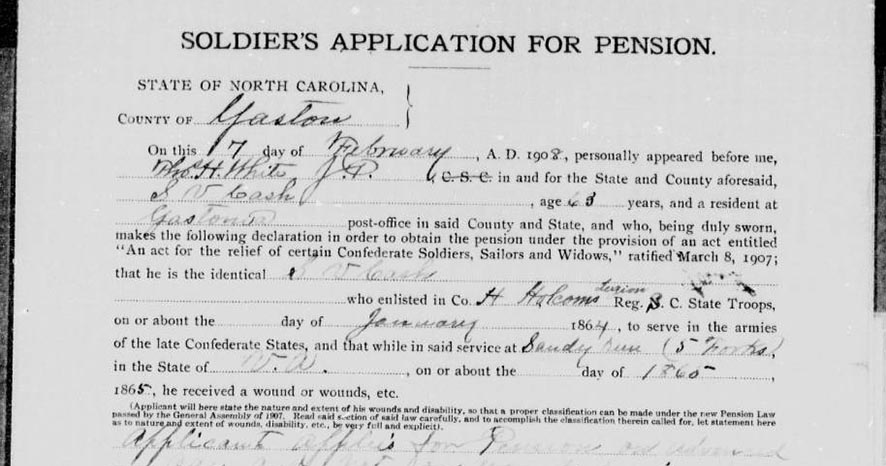 SOLDIER'S APPLICATION FOR PENSION.
STATE OF NORTH CAROLINA,
COUNTY OF Gaston
On this 17 day of February, A. D. 1908, personally appeared before me,
Thos H. White J. P., C. S. C. in and for the State and County aforesaid,
S V Cash, age 63 years, and a resident at
Gastonia post-office in said County and State, and who, being duly sworn,
makes the following declaration in order to obtain the pension under the provision of an act entitled
"An act for the relief of certain Confederate Soldiers, Sailors and Widows," ratified March 8, 1907;
that he is the identical S V Cash
who enlisted in Co. H Holcoms Legion Reg. S. C. State Troops,
on or about the day of January 1864, to serve in the armies
of the late Confederate States, and that while in said service at Sandy run (5 Forks)
in the State of V. A., on or about the day of 1865,
1865, he received a wound or wounds, etc.
(Applicant will here state the nature and extent of his wounds and disability, so that a proper classification can be made under the new Pension Law
passed by the General Assembly of 1907. Read said section of said law carefully, and to accomplish the classification therein called for, let statement here
as to nature and extent of wounds, disability, etc., be very full and explicit).
Applicant applies for Pension on advanced